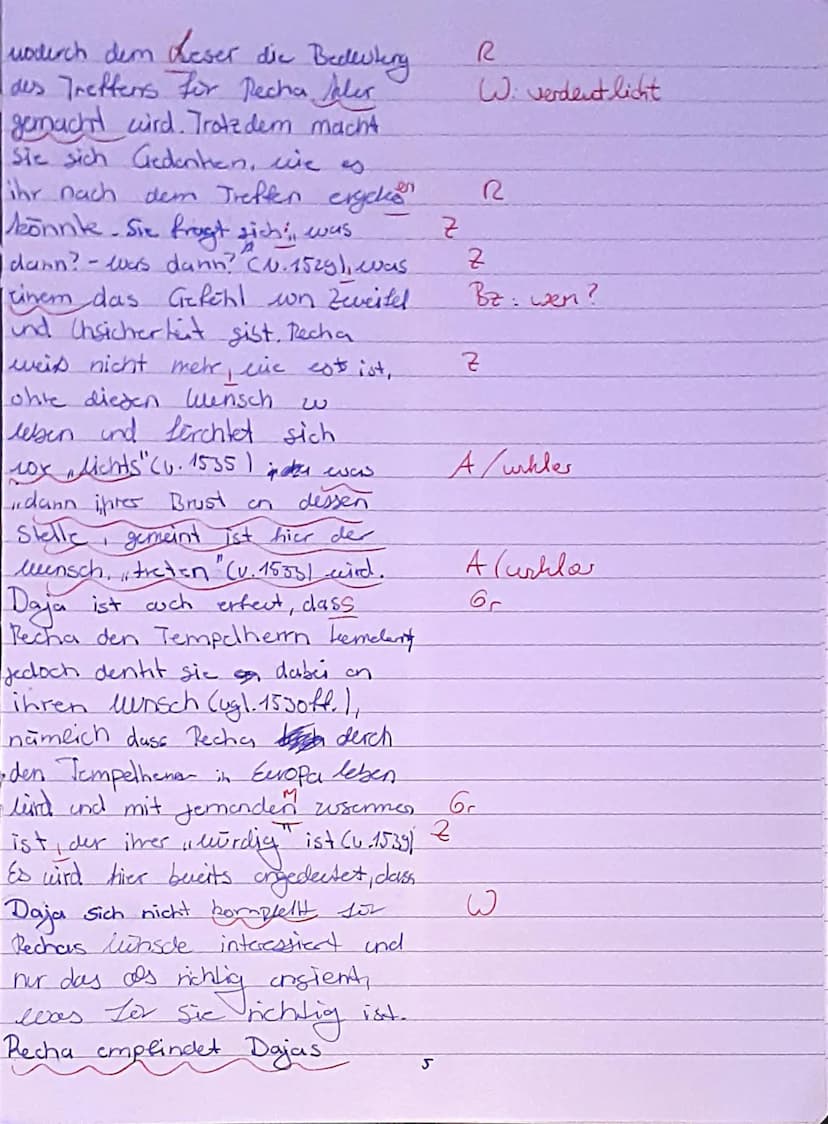 wodurch dem Leser die Bedeutung R
des Treffens für Recha klar W: verdeutlicht
gemacht wird. Trotzdem macht
sie sich Gedanken, wie es
ihr nach dem Treffen ergehen R
könnte. Sie fragt sich: „was Z
dann? – was dann?" (V. 1529), was Z
einem das Gefühl von Zweifel Bz: wen?
und Unsicherheit gibt. Recha
weiß nicht mehr, wie es ist, Z
ohne diesen Wunsch zu
leben und fürchtet sich
vor „Nichts" (V. 1535) was A/unklar
„dann ihrer Brust an dessen
Stelle, gemeint ist hier der
Wunsch, „treten" (V. 1533) wird. A/unklar
Daja ist auch erfreut, dass Gr
Recha den Tempelherrn
jedoch denkt sie dabei an
ihren Wunsch (vgl. 1530ff.),
nämlich dass Recha durch
den Tempelherrn in Europa leben
wird und mit jemandem zusammen Gr
ist, der ihrer „würdig" ist (V. 1539) Z
Es wird hier bereits angedeutet, dass
Daja sich nicht komplett für W
Rechas Wünsche interessiert und
nur das als richtig ansieht,
was für sie richtig ist.
Recha empfindet Dajas
5